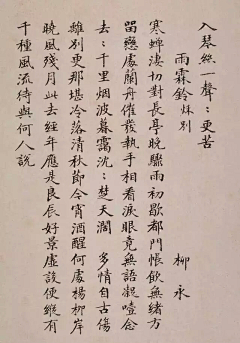 入琴絲一聲〻更苦
雨霖鈴 秋別
柳永
寒蟬淒切對長亭晚驟雨初歇都門帳飲無緒方
留戀處蘭舟催發執手相看淚眼竟無語凝噎念
去〻千里烟波暮靄沈〻楚天闊 多情自古傷
離別更那堪冷落清秋節今宵酒醒何處楊柳岸
曉風殘月此去經年應是良辰好景虛設便縱有
千種風流待與何人說